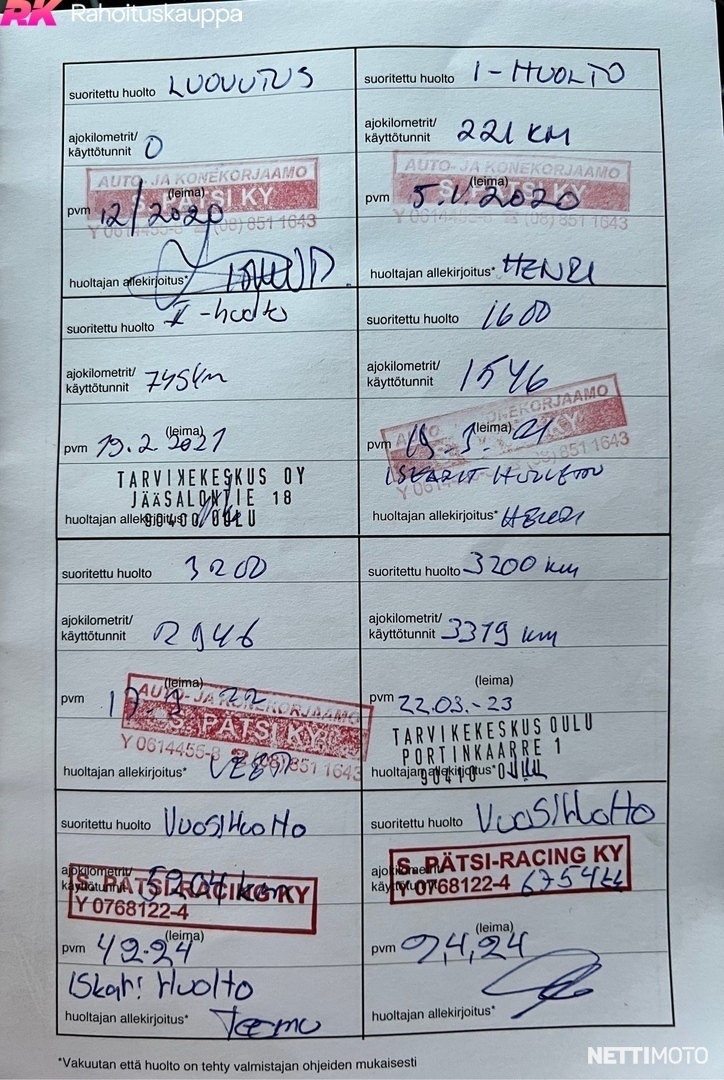 RK Rahoituskauppa
suoritettu huolto LUOVUTUS
ajokilometrit/
käyttötunnit 0
AUTO- JA KONEKORJAAMO
(leima)
S. PÄTSI KY
pvm 12/2020
Y 0614455-8 ☎ (08) 851 1643
huoltajan allekirjoitus*
suoritettu huolto I-HUOLTO
ajokilometrit/
käyttötunnit 221 KM
AUTO- JA KONEKORJAAMO
(leima)
S. PÄTSI KY
pvm 5.1.2020
Y 0614455-8 ☎ (08) 851 1643
huoltajan allekirjoitus* HENRI
suoritettu huolto II-huolto
ajokilometrit/
käyttötunnit 745km
(leima)
pvm 19.2.2021
TARVIKEKESKUS OY
JÄÄSALONTIE 18
huoltajan allekirjoitus*
90400 OULU
suoritettu huolto 1600
ajokilometrit/
käyttötunnit 1546
AUTO- JA KONEKORJAAMO
(leima)
pvm
ISKARIT HUOLLETTU
huoltajan allekirjoitus* HENRI
suoritettu huolto 3200
ajokilometrit/
käyttötunnit 2946
(leima)
AUTO- JA KONEKORJAAMO
pvm
S. PÄTSI KY
Y 0614455-8 ☎ (08) 851 1643
huoltajan allekirjoitus*
suoritettu huolto 3200 km
ajokilometrit/
käyttötunnit 3319 km
(leima)
pvm 22.03.-23
TARVIKEKESKUS OULU
PORTINKAARRE 1
huoltajan allekirjoitus*
90410 OULU
suoritettu huolto VUOSIHUOLTO
ajokilometrit/
käyttötunnit 5204 km
S. PÄTSI-RACING KY
Y 0768122-4
(leima)
pvm 4 9.24
Iskari Huolto
huoltajan allekirjoitus* Teemu
suoritettu huolto VUOSIHUOLTO
ajokilometrit/
käyttötunnit 6754
S. PÄTSI-RACING KY
Y 0768122-4
(leima)
pvm 9,4,24
huoltajan allekirjoitus*
*Vakuutan että huolto on tehty valmistajan ohjeiden mukaisesti
NETTIMOTO